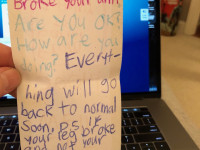 Broke your arm
Are you OK?
How are you
doing? Every-
thing will go
back to normal
soon, p.s. if
your leg broke
and not your